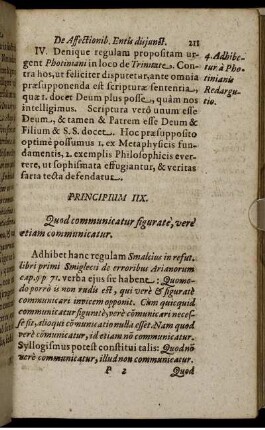 De Affectionib. Entis disjunct. 211
IV. Denique regulam propositam ur-
gent Photiniani in loco de Trinitate. Con-
tra hos, ut feliciter disputetur, ante omnia
præsupponenda est scripturæ sententia,
quæ 1. docet Deum plus posse, quàm nos
intelligimus. Scriptura verò unum esse
Deum, & tamen & Patrem esse Deum &
Filium & S.S. docet. Hoc præsupposito
optimè possumus 1. ex Metaphysicis fun-
damentis, 2. exemplis Philosophicis ever-
tere, ut sophismata effugiantur, & veritas
sarta tecta defendatur.
4. Adhibe-
tur à Pho-
tinianis
Redargu-
tio.
PRINCIPIUM IIX.
Quod communicatur figuratè, verè
etiam communicatur.
Adhibet hanc regulam Smalcius in refut.
libri primi Smiglecii de erroribus Arianorum
cap. 9. p. 71. verba ejus sic habent: Quomo-
do porrò is non rudis est, qui verè & figuratè
communicari invicem opponit. Cùm quicquid
communicatur figuratè, verè cōmunicari neces-
se sit, alioqui cōmunicatio nulla esset. Nam quod
verè cōmunicatur, id etiam nō communicatur.
Syllogismus potest constitui talis: Quod nō
verè communicatur, illud non communicatur.
P 2 Quod